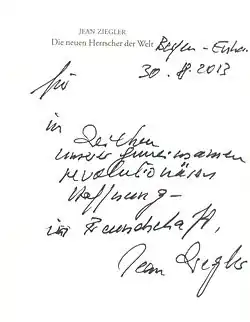 JEAN ZIEGLER
Die neuen Herrscher der Welt
30. 8. 2013
für
im Zeichen
unserer gemeinsamen
revolutionären
Hoffnung –
in Freundschaft,
Jean Ziegler